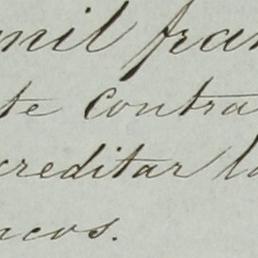 mil fran
te contra
creditar la
ncos.